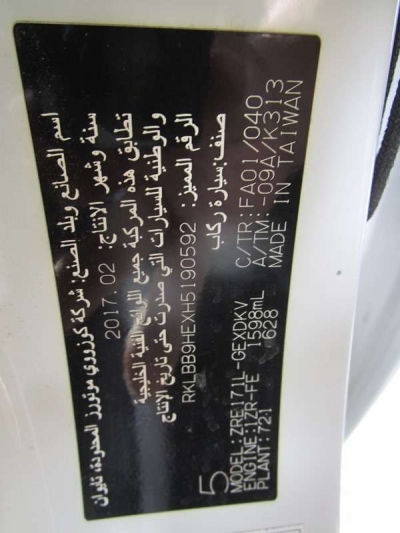 اسم الصانع وبلد الصنع: شركة كوزوروي موتورز المحدودة، تايوان
سنة وشهر الإنتاج: 2017. 02
تطابق هذه المركبة جميع اللوائح الفنية الخليجية
والوطنية للسيارات التي صدرت حتى تاريخ الإنتاج
الرقم المميز: RKLBB9HEXH5190592
صنف: سيارة ركاب
5
MODEL: ZRE171L-GEXDKV
ENGINE: 1ZR-FE 1598mL
PLANT: 721 628
C/TR: FA01/040
A/TM: -09A/K313
MADE IN TAIWAN